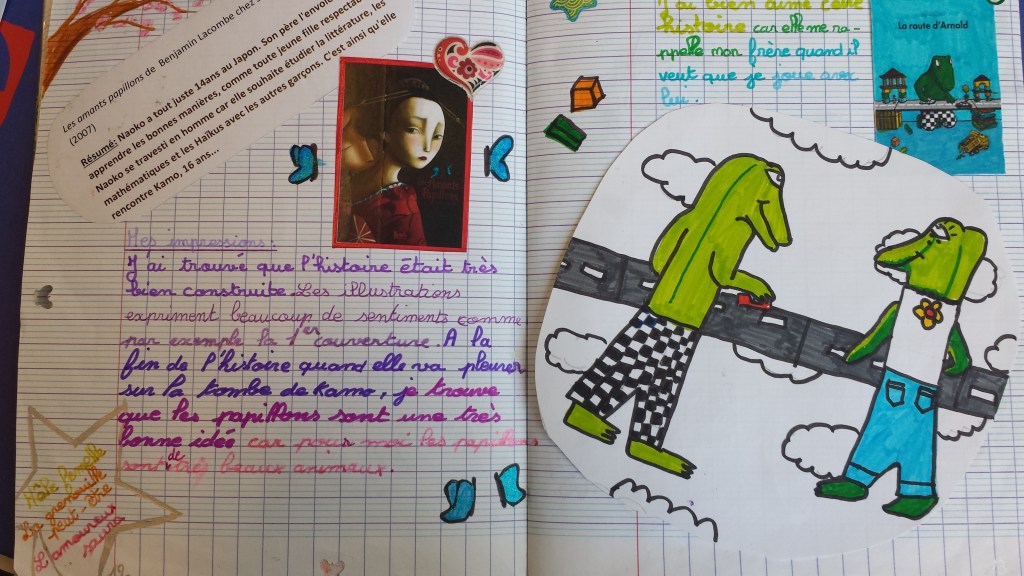 Les amants papillons de Benjamin Lacombe chez
(2007)
Résumé: Naoko a tout juste 14ans au Japon. Son père l'envoie
apprendre les bonnes manières, comme toute jeune fille respectab
Naoko se travesti en homme car elle souhaite étudier la littérature, les
mathématiques et les Haïkus avec les autres garçons. C'est ainsi qu'elle
rencontre Kamo, 16 ans...
Mes impressions:
J'ai trouvé que l'histoire était très
bien construite. Les illustrations
expriment beaucoup de sentiments comme
par exemple la 1er couverture. A la
fin de l'histoire quand elle va pleurer
sur la tombe de Kamo, je trouve
que les papillons sont une très
bonne idée car pour moi les papillons
sont de très beaux animaux.
La grenouille
peut-être
L'amoureux
saura
J'ai bien aimé cette
histoire car elle me ra-
ppelle mon frère quand il
veut que je joue avec
lui.
La route d'Arnold